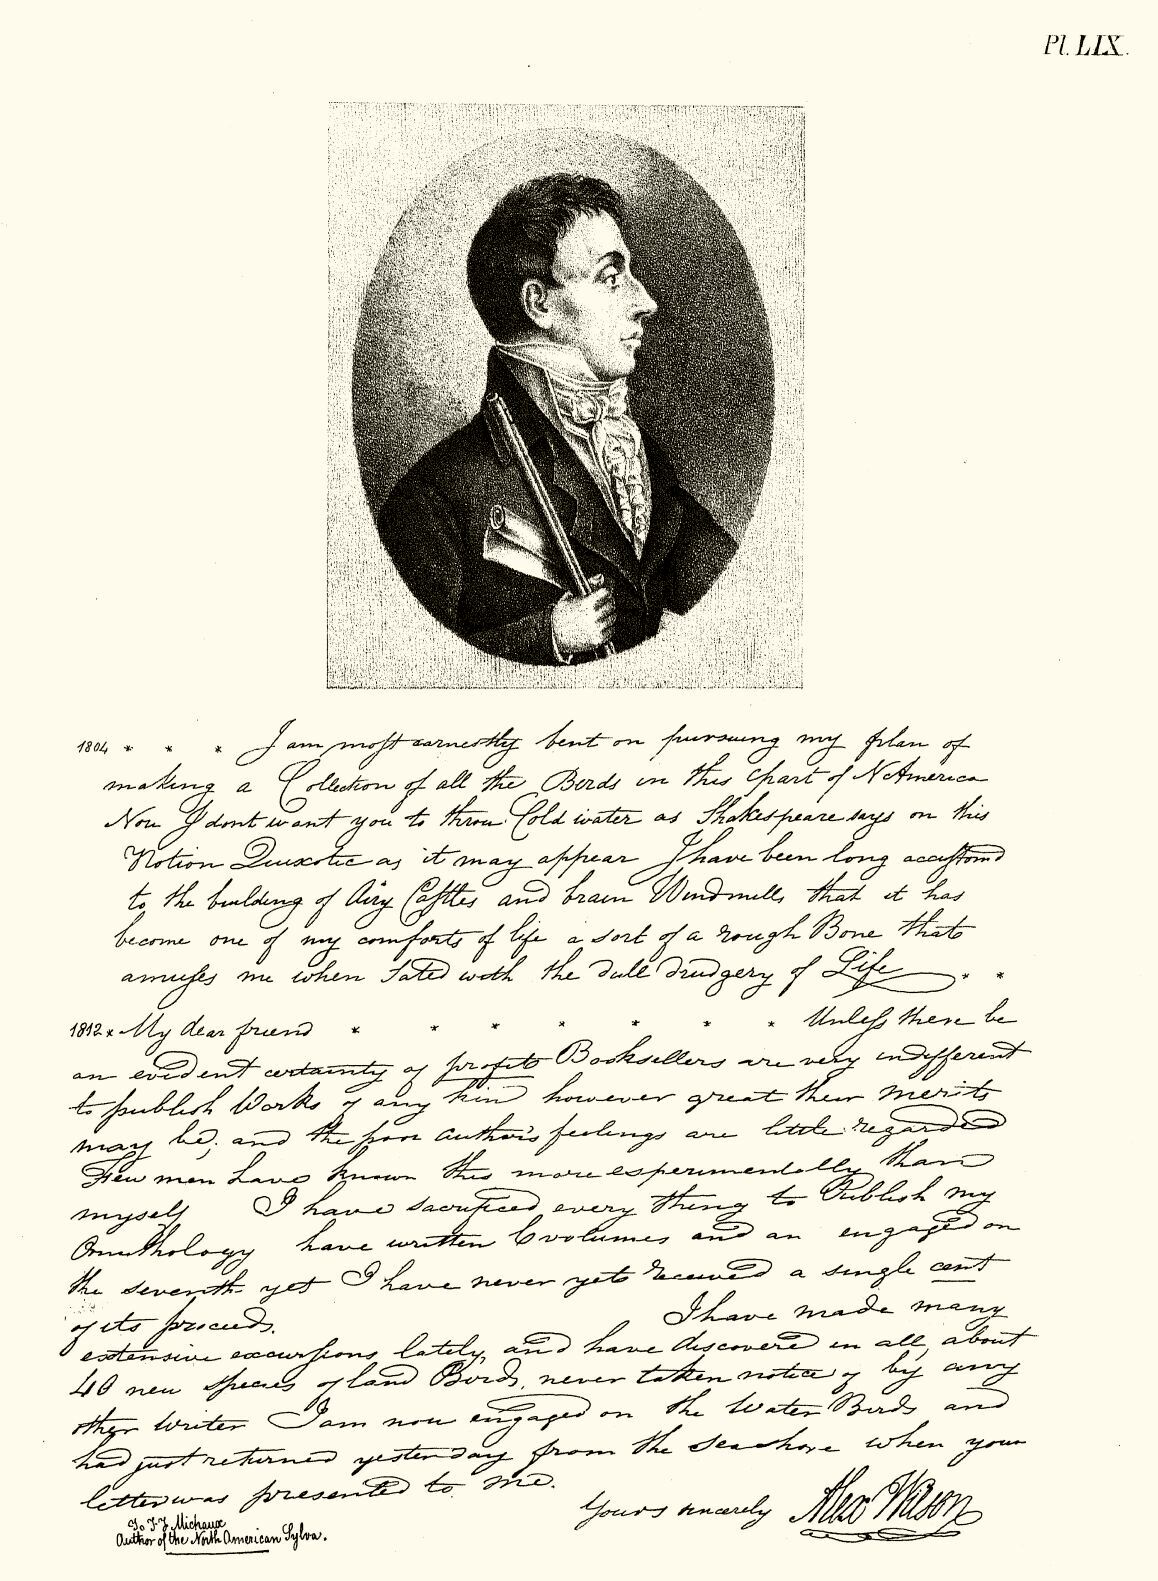 Pl. LIX.
1804 * * * I am most earnestly bent on pursuing my plan of
making a Collection of all the Birds in this part of N America
Now I dont want you to throw Cold water as Shakespeare says on this
Notion Quixotic as it may appear I have been long accustomd
to the building of Airy Castles and brain Windmills that it has
become one of my comforts of life a sort of a rough Bone that
amuses me when Sated with the dull drudgery of Life * *
1812 * My dear friend * * * * * * * Unless there be
an evident certainty of profit Booksellers are very indifferent
to publish Works of any kind however great their merits
may be; and the poor author's feelings are little regarded
Few men have known this more experimentally than
myself I have sacrificed every thing to Publish my
Ornithology have written 6 volumes and am engaged on
the seventh yet I have never yet received a single cent
of its proceeds. I have made many
extensive excursions lately, and have discovered in all, about
40 new species of land Birds, never taken notice of by any
other writer I am now engaged on the Water Birds and
had just returned yesterday from the seashore when your
letter was presented to me.
Yours sincerely Alex Wilson
To F. Michaux
Author of the North American Sylva.